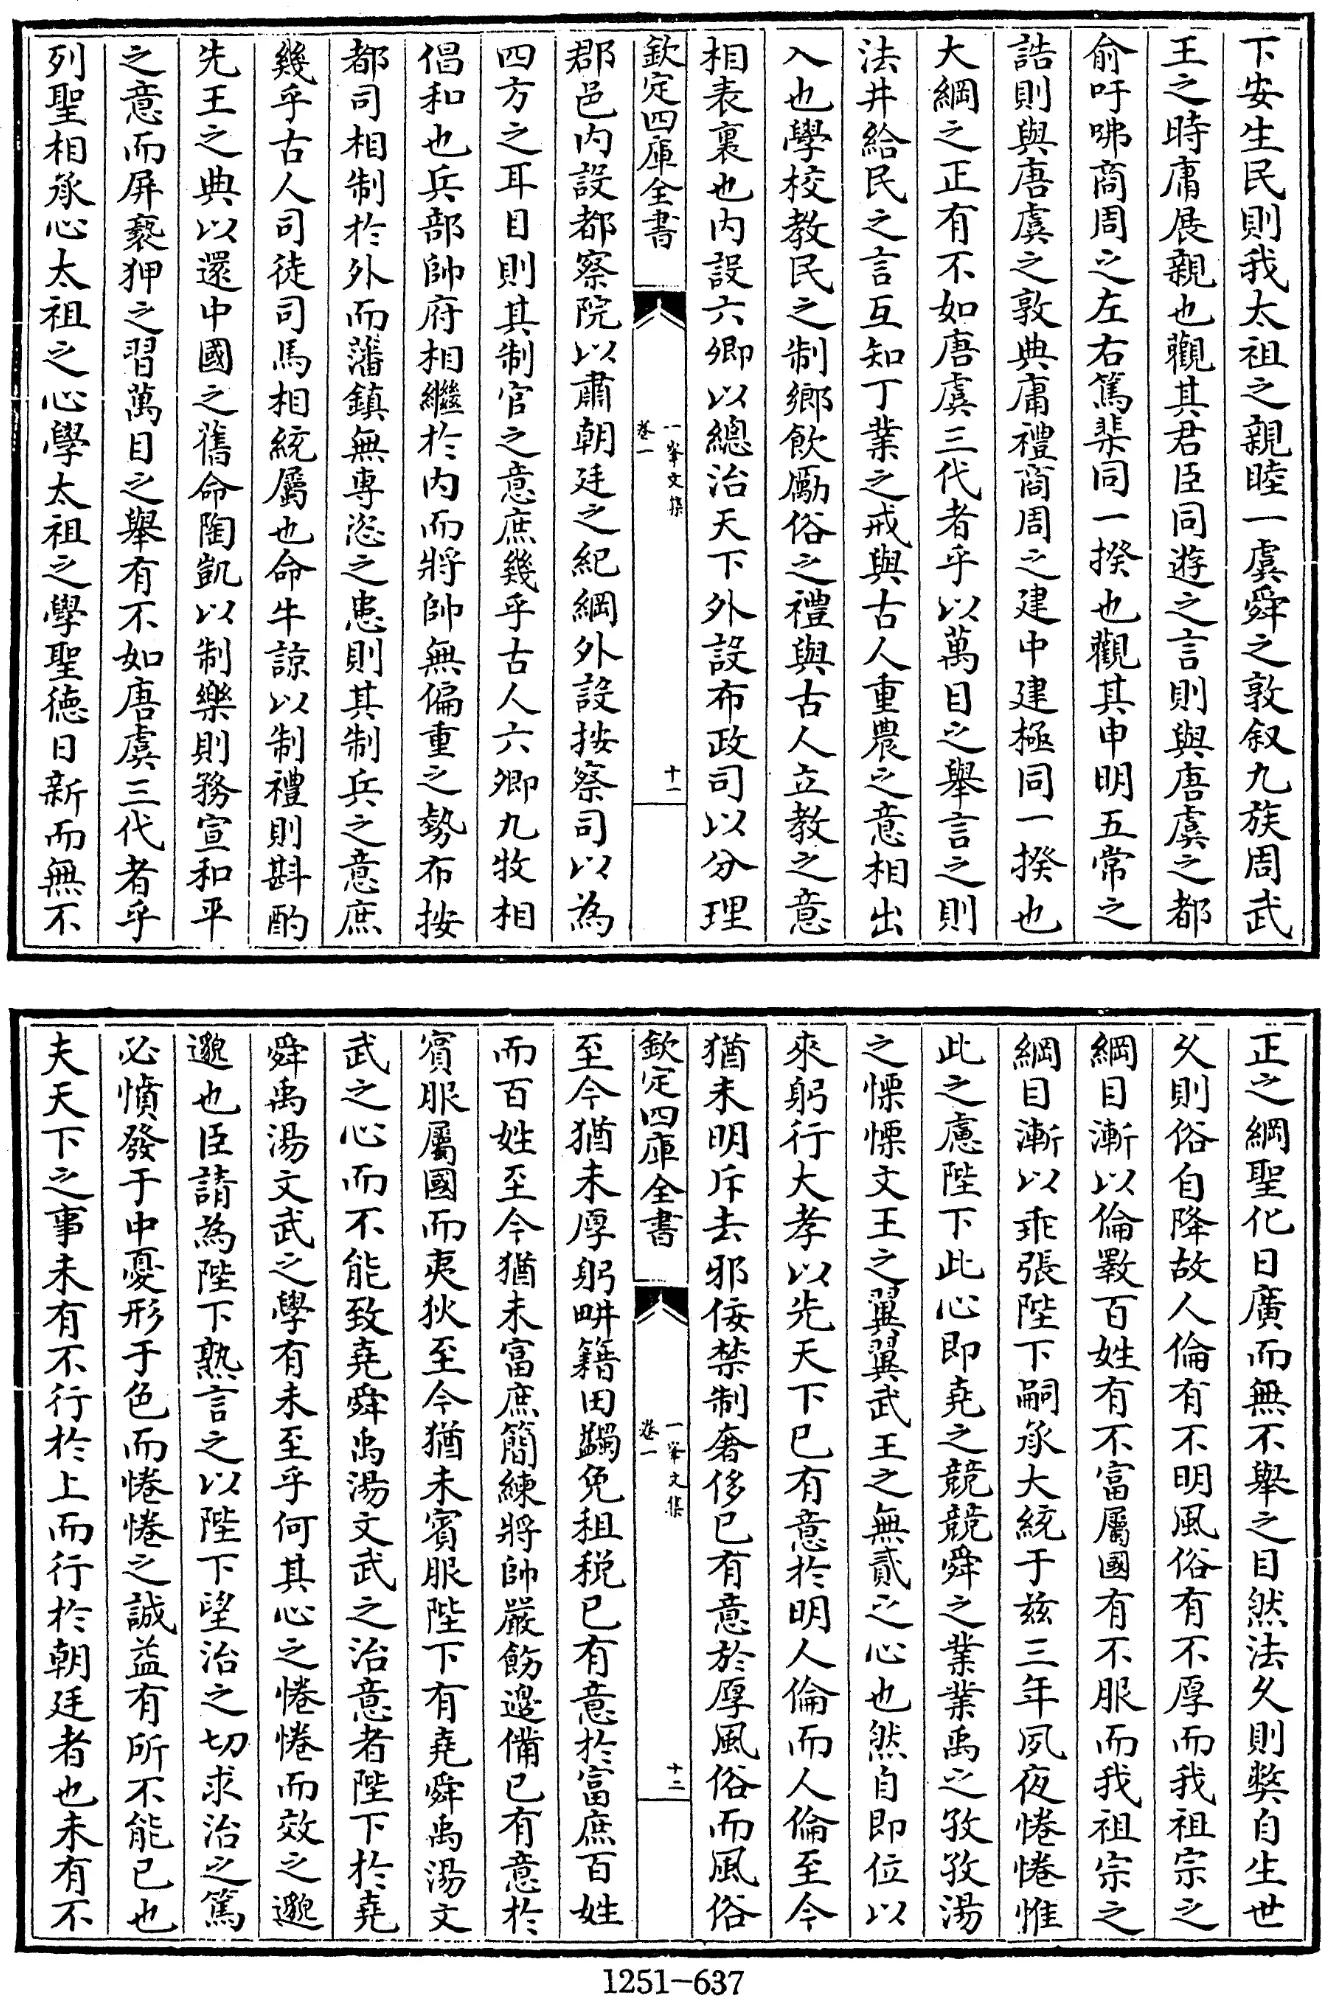 下安生民則我太祖之親睦一虞舜之敦叙九族周武
王之時庸展親也觀其君臣同遊之言則與唐虞之都
俞吁咈商周之左右篤棐同一揆也觀其申明五常之
誥則與唐虞之敦典庸禮商周之建中建極同一揆也
大綱之正有不如唐虞三代者乎以萬目之舉言之則
法井給民之言互知丁業之戒與古人重農之意相出
入也學校教民之制鄉飲勵俗之禮與古人立教之意
相表裏也内設六卿以總治天下外設布政司以分理
欽定四庫全書
一峯文集
卷一
十一
郡邑内設都察院以肅朝廷之紀綱外設按察司以為
四方之耳目則其制官之意庶幾乎古人六卿九牧相
倡和也兵部帥府相繼於内而將帥無偏重之勢布按
都司相制於外而藩鎮無專恣之患則其制兵之意庶
幾乎古人司徒司馬相統屬也命牛諒以制禮則斟酌
先王之典以還中國之舊命陶凱以制樂則務宣和平
之意而屏褻狎之習萬目之舉有不如唐虞三代者乎
列聖相承心太祖之心學太祖之學聖德日新而無不
正之綱聖化日廣而無不舉之目然法久則弊自生世
久則俗自降故人倫有不明風俗有不厚而我祖宗之
綱目漸以倫斁百姓有不富屬國有不服而我祖宗之
綱目漸以乖張陛下嗣承大統于兹三年夙夜惓惓惟
此之慮陛下此心即堯之兢兢舜之業業禹之孜孜湯
之慄慄文王之翼翼武王之無貳之心也然自即位以
來躬行大孝以先天下已有意於明人倫而人倫至今
猶未明斥去邪佞禁制奢侈已有意於厚風俗而風俗
欽定四庫全書
一峯文集
卷一
十二
至今猶未厚躬畊籍田蠲免租税已有意於富庶百姓
而百姓至今猶未富庶簡練將帥嚴飭邊備已有意於
賓服屬國而夷狄至今猶未賓服陛下有堯舜禹湯文
武之心而不能致堯舜禹湯文武之治意者陛下於堯
舜禹湯文武之學有未至乎何其心之惓惓而效之邈
邈也臣請為陛下熟言之以陛下望治之切求治之篤
必憤發于中憂形于色而惓惓之誠益有所不能已也
夫天下之事未有不行於上而行於朝廷者也未有不
1251-637